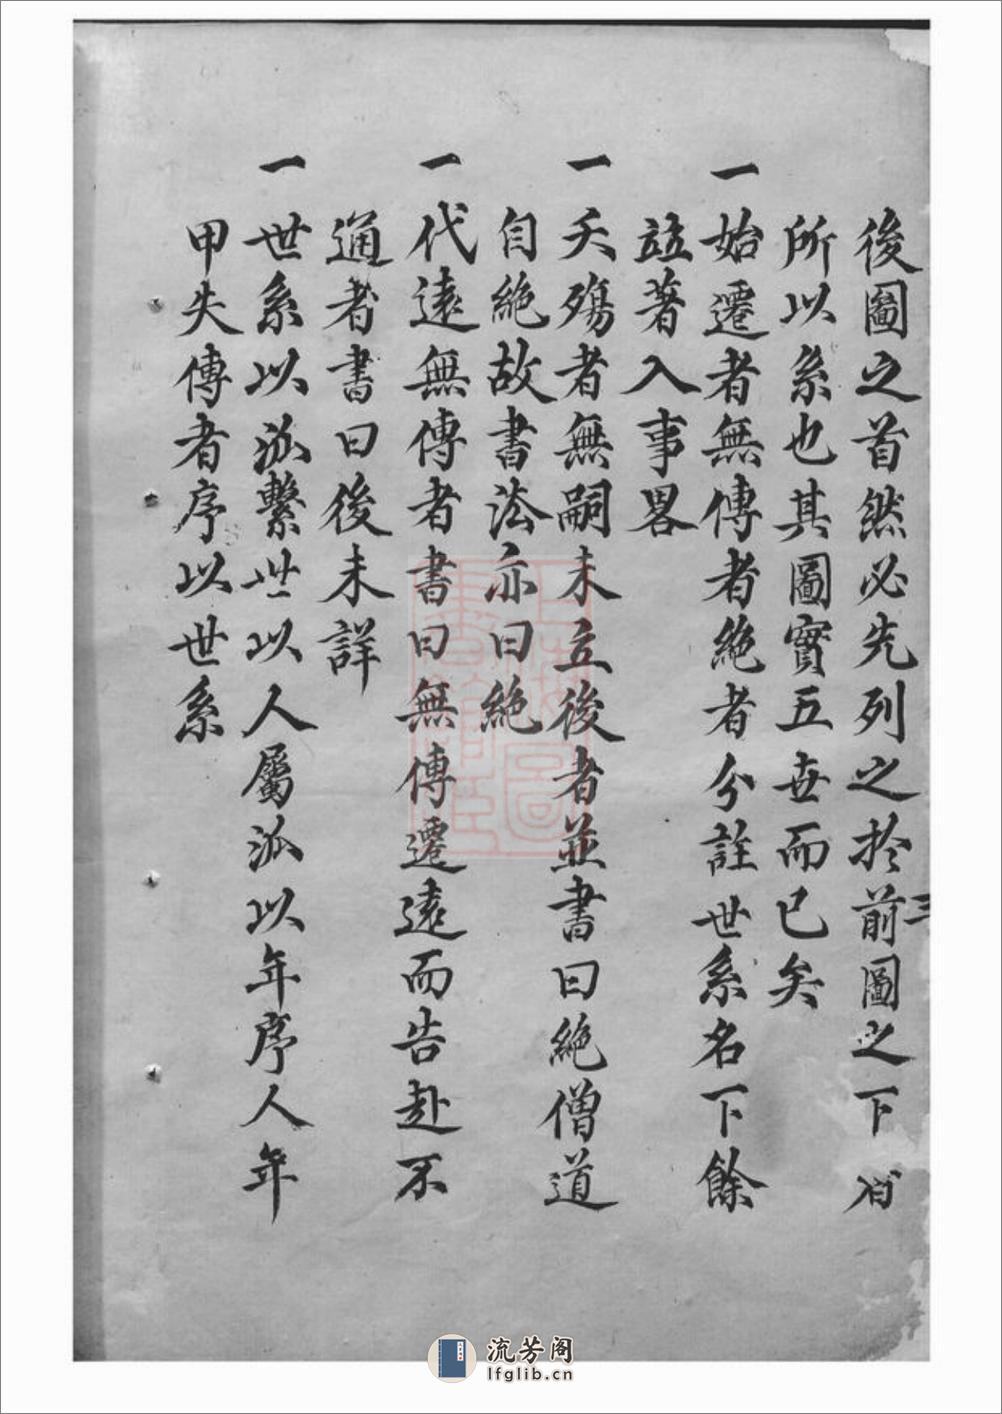 後圖之首然必先列之於前圖之下
所以系也其圖實五世而已矣
一始遷者無傳者絶者分註世系名下餘
竝著入事畧
一夭殤者無嗣未立後者並書曰絶僧道
自絶故書法亦曰絶
一代遠無傳者書曰無傳遷遠而告赴不
通者書曰後未詳
一世系以派繫世以人屬派以年序人年
甲失傳者序以世系
三
流芳阁
lfglib.cn